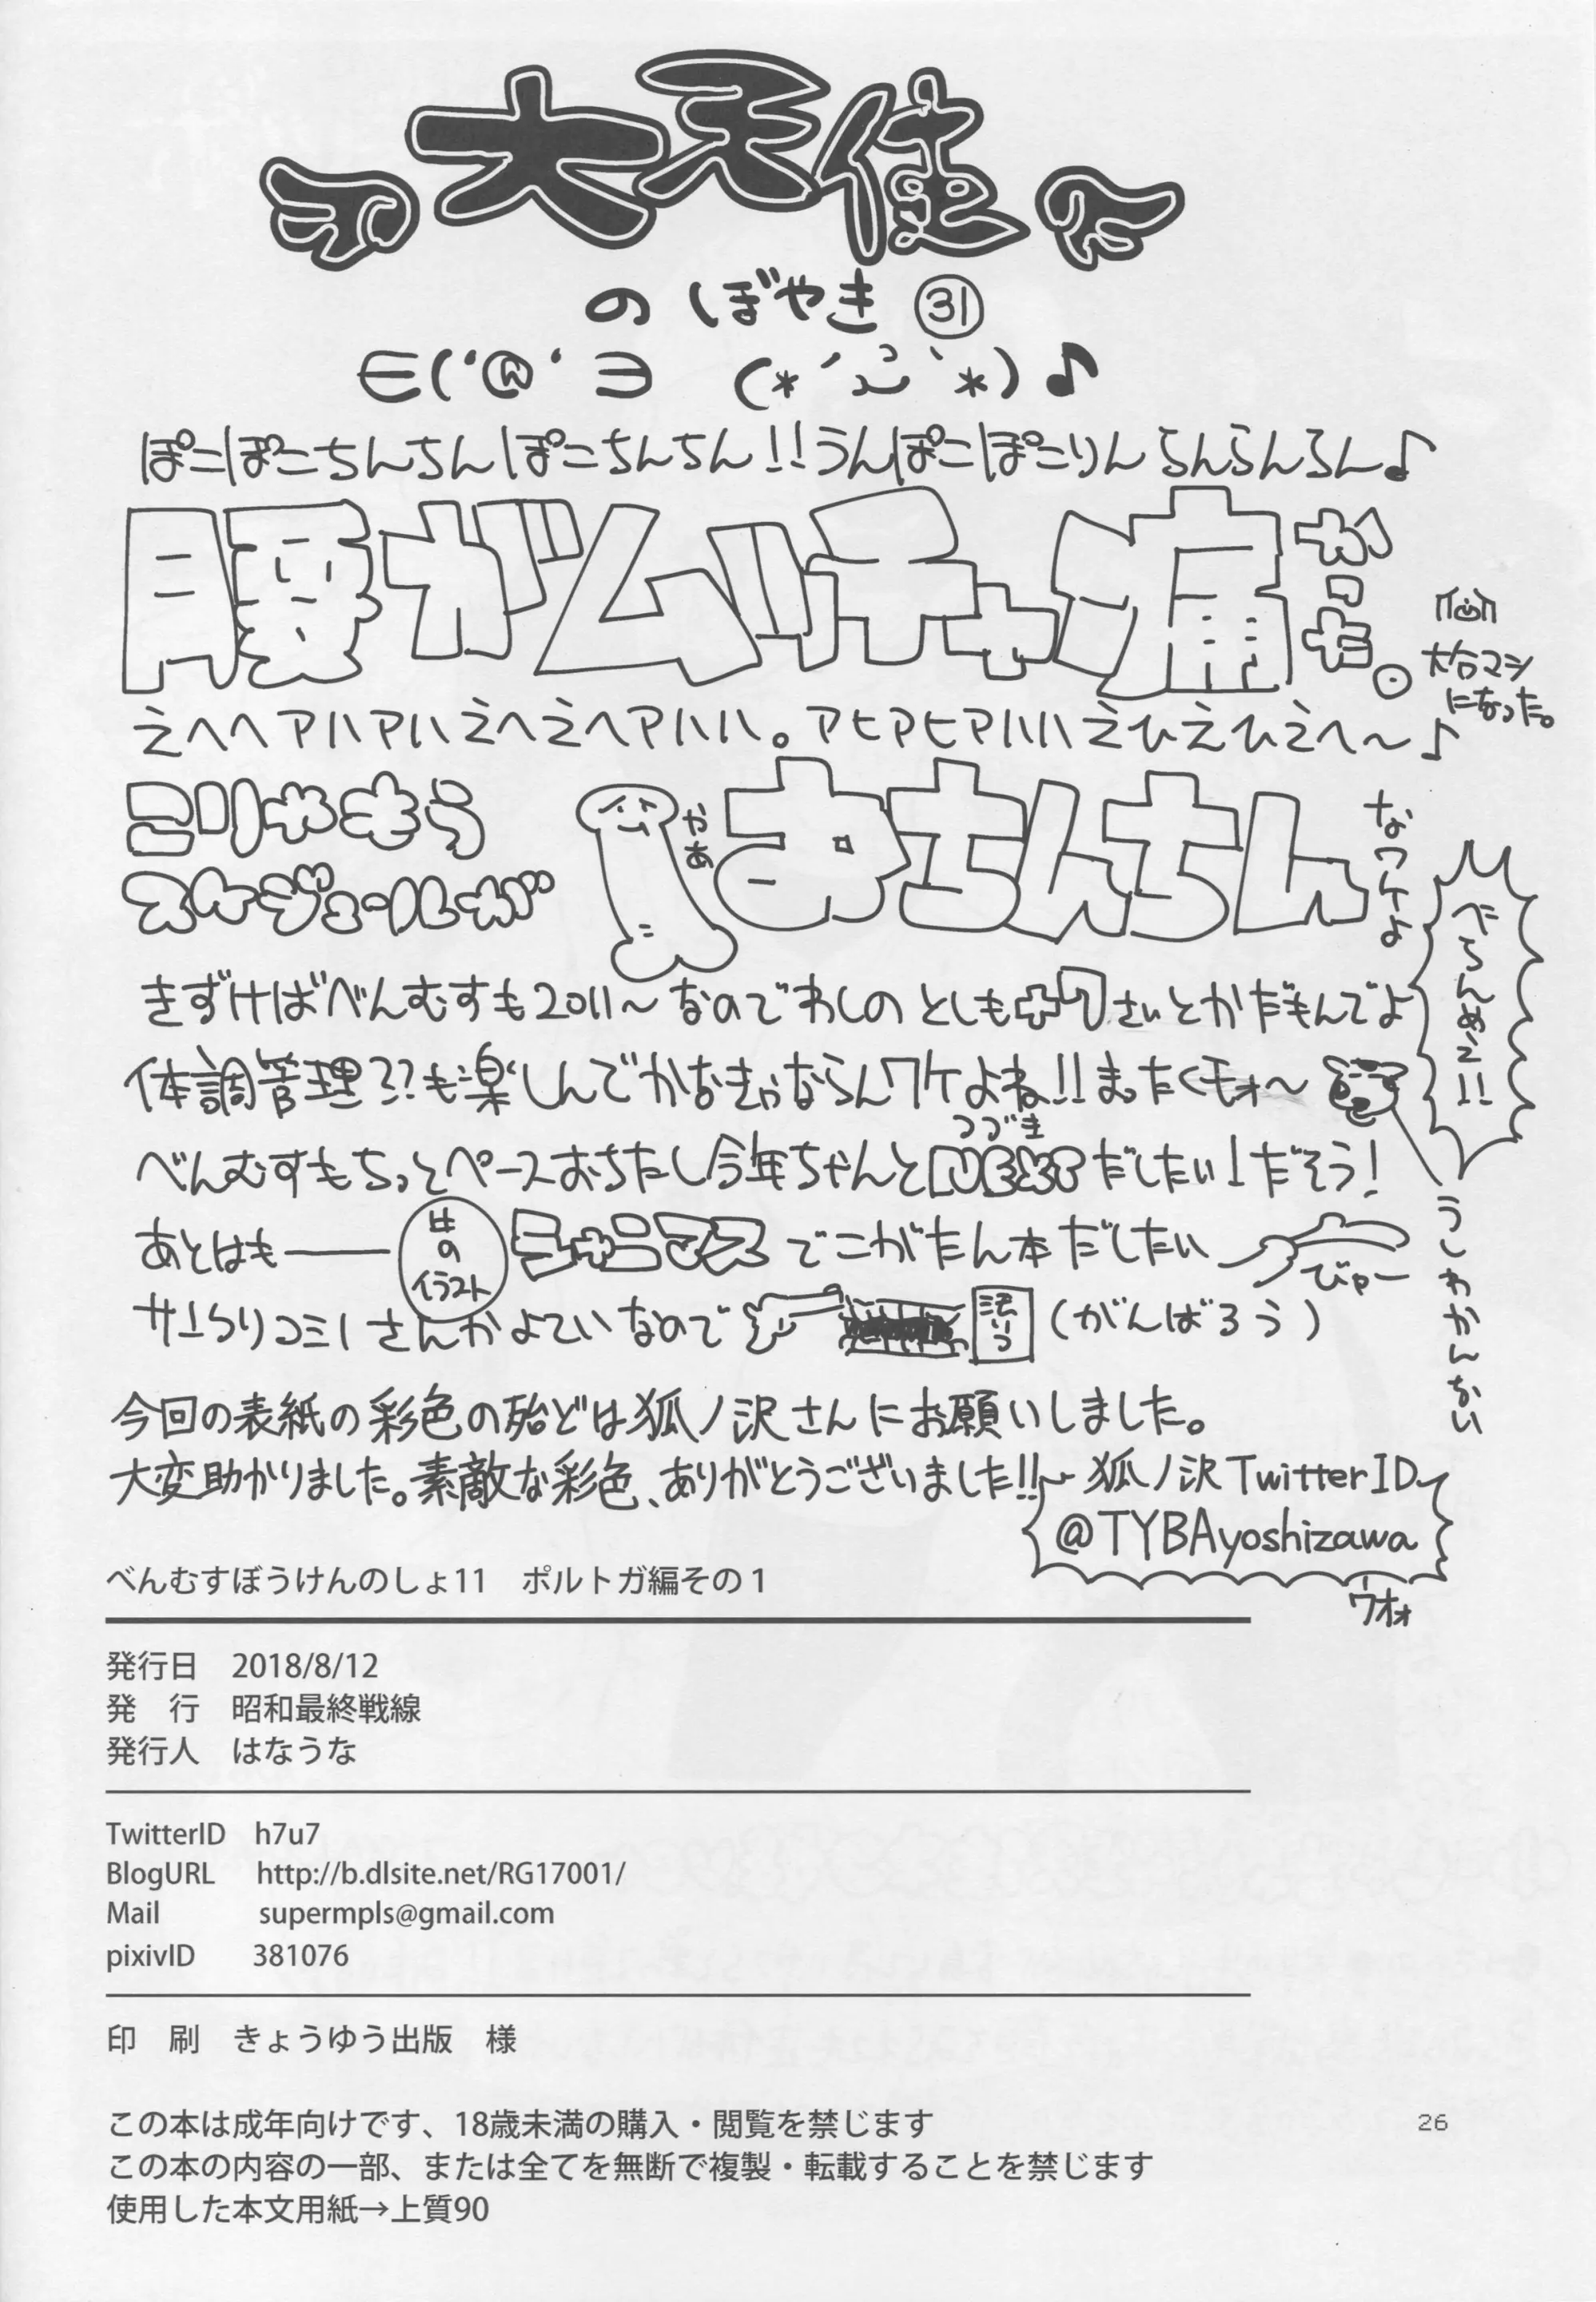 大天使
のぼやき㉛
∈('@'∋ (*´`*)♪
ぽこぽこちんちんぽこちんちん!!うんぽこぽこりんらんらんらん♪
腰ガムッチャ痛かった。
大分マシ
になった。
えへへアハアハえへえへアハハハ。アヒアヒアハハハえひえひえへ〜♪
こりゃもう
スケジュールが
やあ
おちんちん
なワケよ
べらんめえ!!
きずけばべんむすも2011〜なのでわしのとしも さいとかだもんでよ
体調管理??も楽しんでかなきゃならんワケよね!!まったくモォ〜
つづき
べんむすもちっとペースおちたし今年ちゃんとNEXTだしたい!だそう!
あとはも――
イラスト
シャニマスでこがたん本だしたい
びゃー
サ さんかよていなので
(がんばろう)
うしわかんない
今回の表紙の彩色の殆どは狐ノ沢さんにお願いしました。
大変助かりました。素敵な彩色、ありがとうございました!!
狐ノ沢TwitterID
@TYBAyoshizawa
ウオォ
べんむすぼうけんのしょ11　ポルトガ編その1
発行日　2018/8/12
発　行　昭和最終戦線
発行人　はなうな
TwitterID　h7u7
BlogURL　http://b.dlsite.net/RG17001/
Mail　supermpls@gmail.com
pixivID　381076
印　刷　きょうゆう出版　様
この本は成年向けです、18歳未満の購入・閲覧を禁じます
この本の内容の一部、または全てを無断で複製・転載することを禁じます
使用した本文用紙→上質90
26